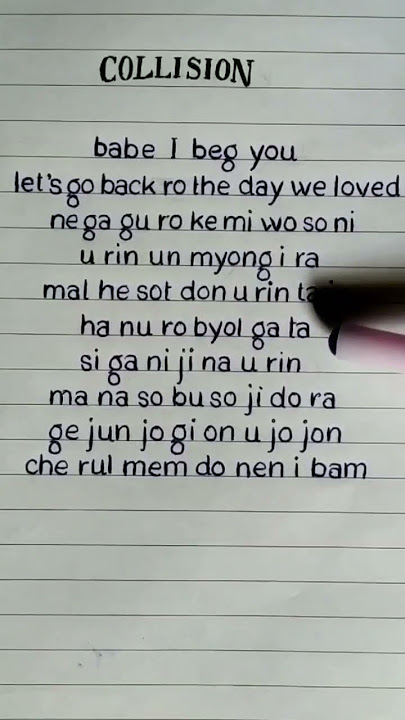 COLLISION
babe I beg you
let's go back ro the day we loved
ne ga gu ro ke mi wo so ni
u rin un myong i ra
mal he sot don u rin
ha nu ro byol ga ta
si ga ni ji na u rin
ma na so bu so ji do ra
ge jun jo gi on u jo jon
che rul mem do nen i bam